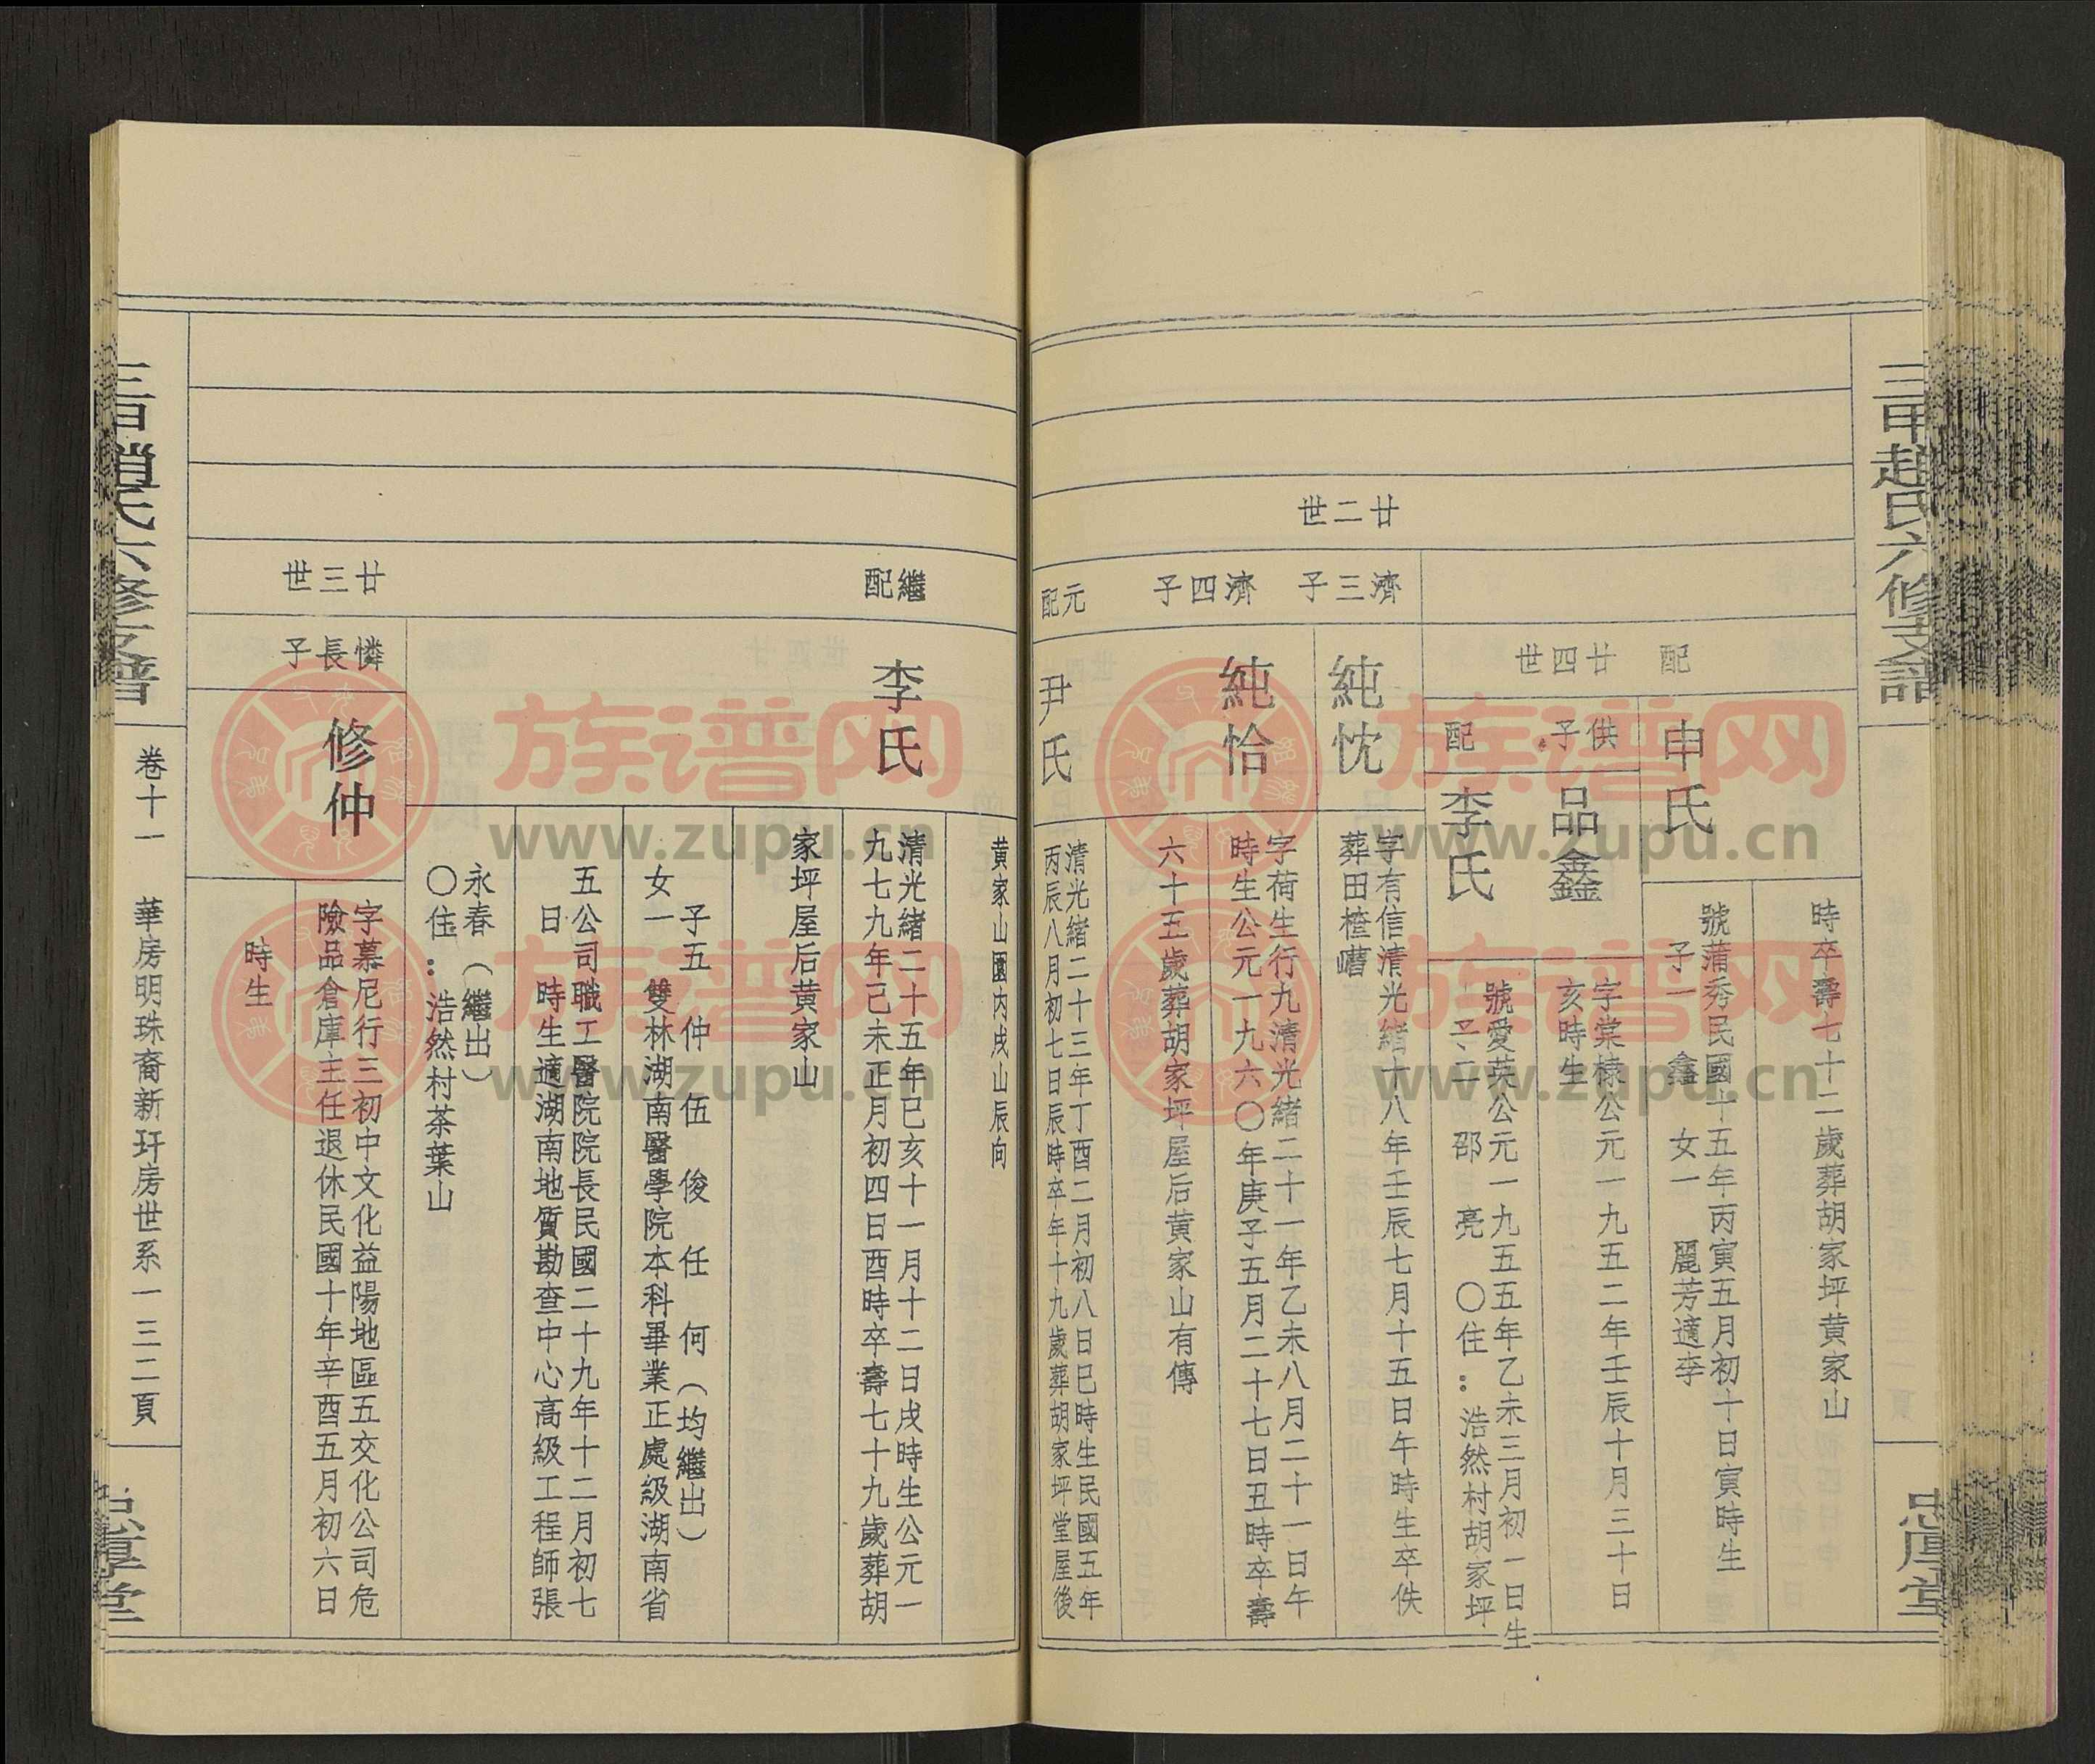 三甲趙氏六修支譜
忠厚堂
時卒壽七十二歲葬胡家坪黄家山
配
申氏
號蒲秀民國十五年丙寅五月初十日寅時生
子一 鑫 女一 麗芳適李
廿二世
廿四世
供子
品鑫
字棠棣公元一九五二年壬辰十月三十日
亥時生
配
李氏
號愛英公元一九五五年乙未三月初一日生
子二 邵 亮 〇住：浩然村胡家坪
濟三子
純忱
字有信清光緒十八年壬辰七月十五日午時生卒佚
葬田楂嘈
濟四子
純恰
字荷生行九清光緒二十一年乙未八月二十一日午
時生公元一九六〇年庚子五月二十七日丑時卒壽
六十五歲葬胡家坪屋后黄家山有傳
元配
尹氏
清光緒二十三年丁酉二月初八日巳時生民國五年
丙辰八月初七日辰時卒年十九歲葬胡家坪堂屋後
黄家山園内戌山辰向
繼配
李氏
清光緒二十五年己亥十一月十二日戌時生公元一
九七九年己未正月初四日酉時卒壽七十九歲葬胡
家坪屋后黄家山
子五 仲 伍 俊 任 何（均繼出）
女一 雙林湖南醫學院本科畢業正處級湖南省
五公司職工醫院院長民國二十九年十二月初七
日 時生適湖南地質勘查中心高級工程師張
永春（繼出）
〇住：浩然村茶葉山
廿三世
憐長子
修仲
字慕尼行三初中文化益陽地區五交化公司危
險品倉庫主任退休民國十年辛酉五月初六日
時生
三甲趙氏六修支譜
卷十一 華房明珠裔新玕房世系一三二頁
忠厚堂
族谱网
www.zupu.cn
族谱网
www.zupu.cn
族谱网
www.zupu.cn
族谱网
www.zupu.cn